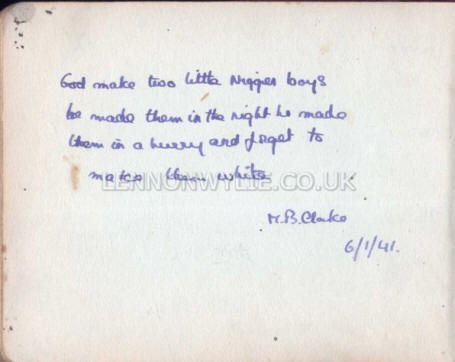 God make two little Nigger boys
he made them in the night he made
them in a hurry and forget to
make them white
LENNONWYLIE.CO.UK
M.B.Clarke
6/1/41.